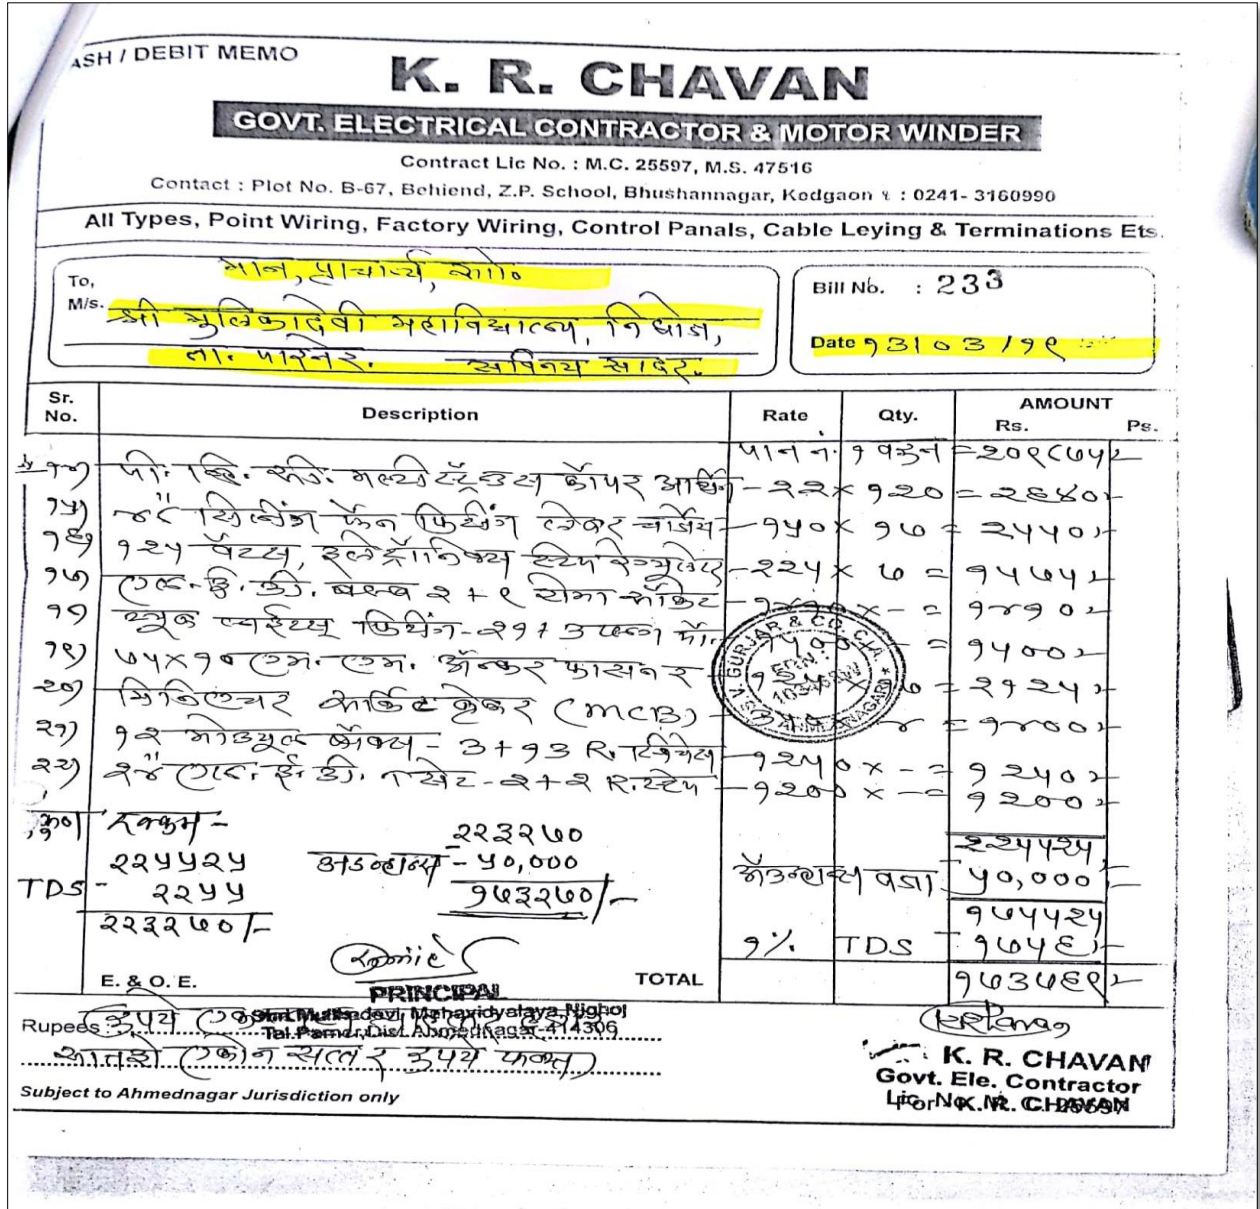 ASH / DEBIT MEMO
K. R. CHAVAN
GOVT. ELECTRICAL CONTRACTOR & MOTOR WINDER
Contract Lic No. : M.C. 25597, M.S. 47516
Contact : Plot No. B-67, Behiend, Z.P. School, Bhushannagar, Kedgaon : 0241- 3160990
All Types, Point Wiring, Factory Wiring, Control Panals, Cable Leying & Terminations Ets.
To, मान, प्राचार्य,
M/s. श्री मुलिकादेवी महाविद्यालय, निघोज,
ता. पारनेर. सविनय सादर.
Bill No. : 233
Date १३/०३/१९
Sr. No. Description Rate Qty. AMOUNT Rs. Ps.
पान नं. १ वरुन = २०९८७५/-
१४) पी. व्हि. सी. मल्टी स्टँडर्ड कॉपर वायरिंग - २२ × १२० = २६४०/-
१५) ४८" सिलिंग फॅन फिटिंग लेबर चार्जेस - १५० × १७ = २५५०/-
१६) १२५ वॅटस्, इलेक्ट्रॉनिक्स स्टेप रेग्युलेटर - २२५ × ७ = १५७५/-
१७) एल. ई. डी. बल्ब २ + ९ = १४१०/-
फिटिंग - २१ + ३ = १५००/-
१९) ७५ × १० एम. एम. अँन्कर फासनर = २१२५/-
२०) मिनिएचर सर्किट ब्रेकर (MCB) - = १४००/-
२१) १२ मोड्युल बॉक्स - ३ + १३ R. - १२५० × - = १२५०/-
२२) २४" एल. ई. डी. सेट - २ + २ R. स्टेप - १२०० × - = १२००/-
रक्कम -
२२५५२५
TDS - २२५५
२२३२७०/-
२२३२७०
अडव्हान्स - ५०,०००
१७३२७०/-
२२५५२५
अॅडव्हान्स वजा ५०,०००/-
१७५५२५
१% TDS - १७५६/-
१७३७६९/-
PRINCIPAL
Shri Mulikadevi Mahavidyalaya, Nighoj
Tal. Parner, Dist. Ahmednagar-414306
E. & O. E.
TOTAL
V. GURJAR & CO. C.A.
AHMEDNAGAR
Rupees रुपये
सातशे एकोन सत्तर रुपये फक्त)
Subject to Ahmednagar Jurisdiction only
K. R. CHAVAN
Govt. Ele. Contractor
Lic. No. M. C. 25597
For K. R. CHAVAN